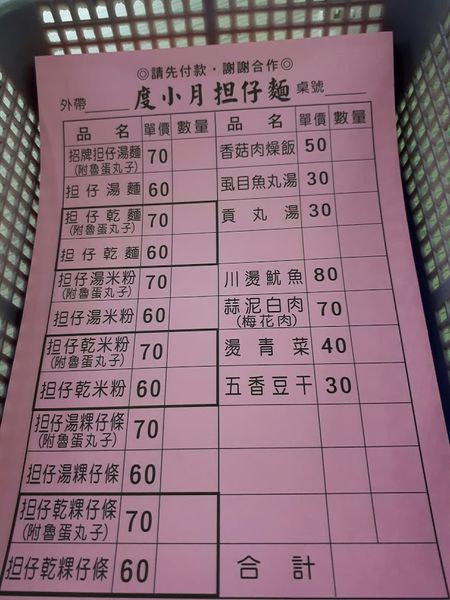 ◎請先付款・謝謝合作◎
外帶 度小月担仔麵 桌號
品名 單價 數量 品名 單價 數量
招牌担仔湯麵 70 香菇肉燥飯 50
(附魯蛋丸子)
担仔湯麵 60 虱目魚丸湯 30
担仔乾麵 70 貢丸湯 30
(附魯蛋丸子)
担仔乾麵 60
担仔湯米粉 70 川燙魷魚 80
(附魯蛋丸子)
担仔湯米粉 60 蒜泥白肉 70
(梅花肉)
担仔乾米粉 70 燙青菜 40
(附魯蛋丸子)
担仔乾米粉 60 五香豆干 30
担仔湯粿仔條 70
(附魯蛋丸子)
担仔湯粿仔條 60
担仔乾粿仔條 70
(附魯蛋丸子)
担仔乾粿仔條 60 合計